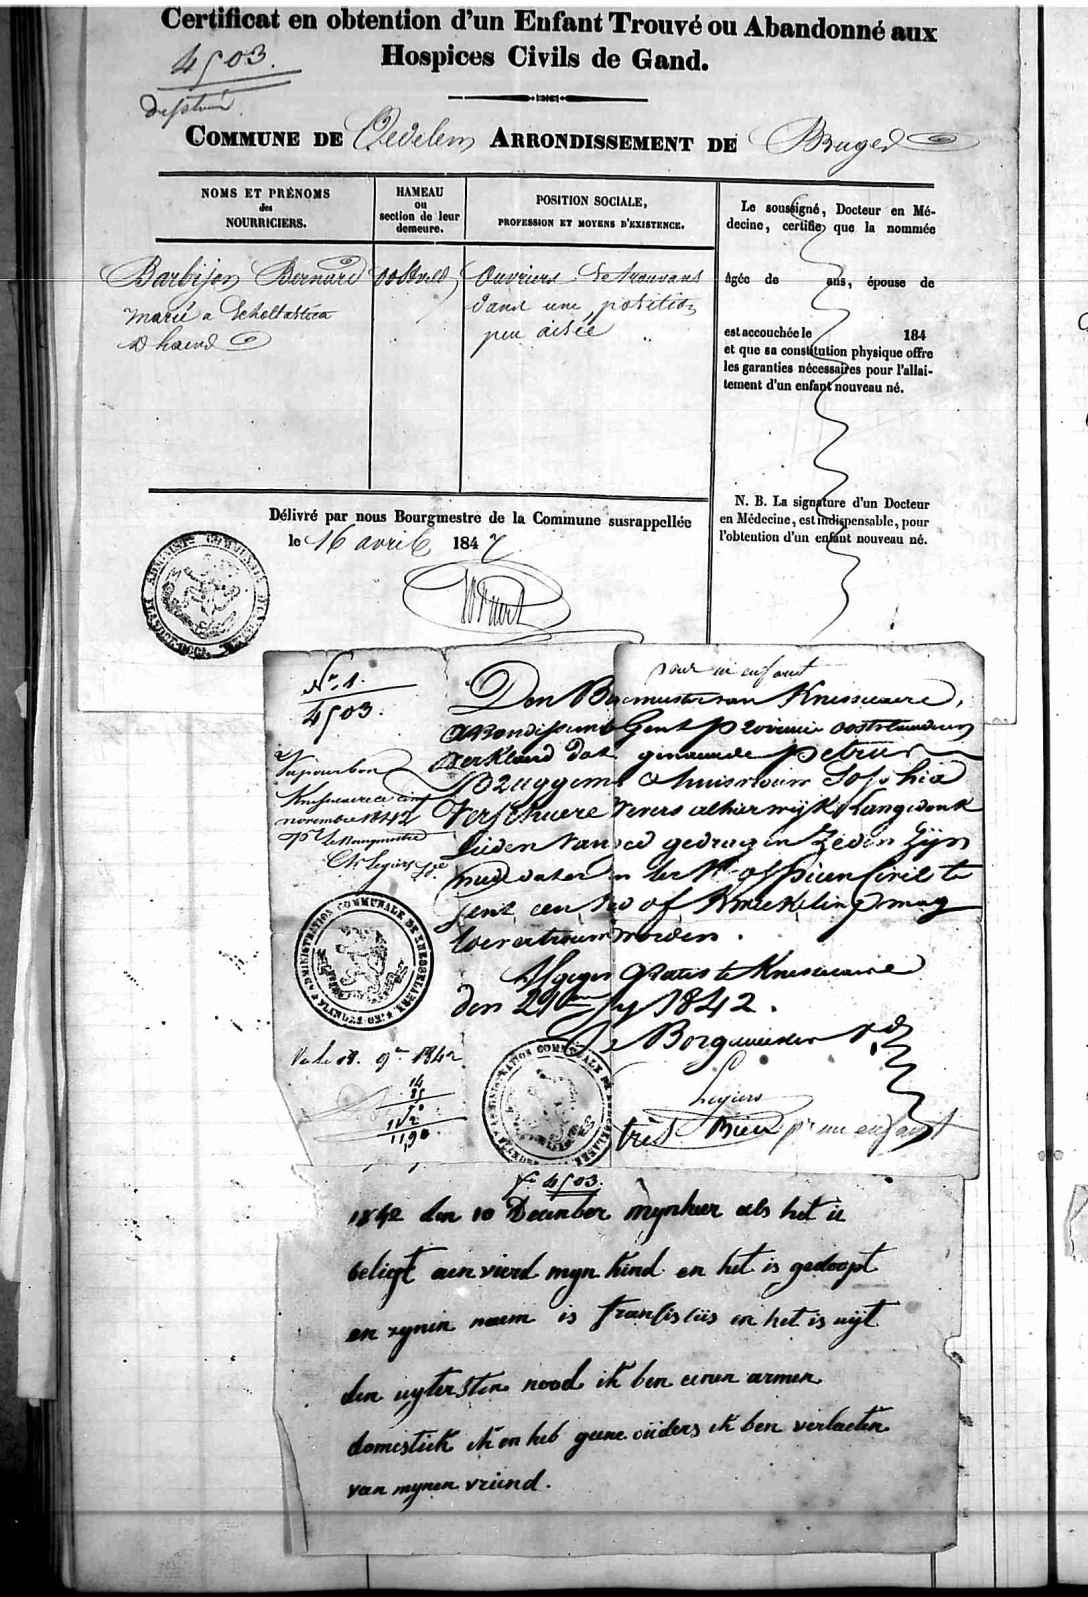 Certificat en obtention d'un Enfant Trouvé ou Abandonné aux
Hospices Civils de Gand.
4503.
COMMUNE DE Oedelem ARRONDISSEMENT DE Bruges
NOMS ET PRÉNOMS
des
NOURRICIERS.
HAMEAU
ou
section de leur
demeure.
POSITION SOCIALE,
PROFESSION ET MOYENS D'EXISTENCE.
Le soussigné, Docteur en Mé-
decine, certifie que la nommée
âgée de ans, épouse de
est accouchée le 184
et que sa constitution physique offre
les garanties nécessaires pour l'allai-
tement d'un enfant nouveau né.
N. B. La signature d'un Docteur
en Médecine, est indispensable, pour
l'obtention d'un enfant nouveau né.
Barbijon Bernard
marié a Scholastica
D'haene
Ouvriers se trouvans
dans une position
peu aisée
Délivré par nous Bourgmestre de la Commune susrappellée
le 16 avril 1847
pour un enfant
No. 1.
4503.
Vu pour bon
Knesselaere le cinq
novembre 1842
pr Le Bourgmestre
Ch Legiers
ADMINISTRATION COMMUNALE DE KNESSELAERE
FLANDRE-ORIENTALE
Den Borgmeester van Knesselaere,
arrondissement Gent provincie oostvlanderen
verklaerd dat genaemde Petrus
Bruggeman & huisvrouw Sophia
Verschuere wevers alhier wijk Hangedonk
lieden van goed gedrag en zeden zijn
Gent een kind of kweekeling mag
toevertrouwd worden.
Afgegeven gratis te Knesselaere
den 21 1842.
De Borgmeester
Legiers
très bien pr un enfant
9re 1842
14
11,90
No 4503.
1842 den 10 December mynheer als het u
beliegt aenvierd myn kind en het is gedoopt
en zynen naem is fransisiis en het is uijt
den uytersten nood ik ben eenen armen
domestiek ik en heb geene ouders ik ben verlaeten
van mynen vriend.